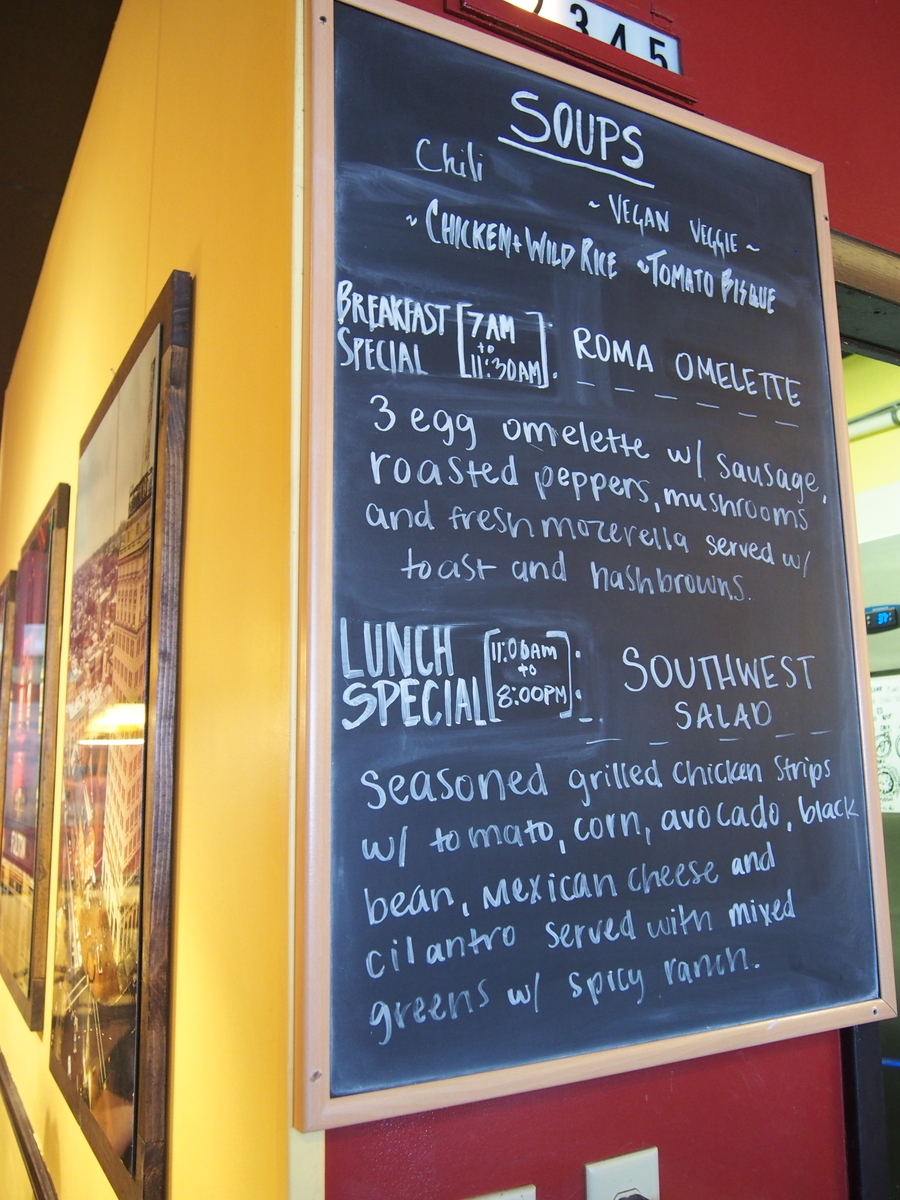 3 4 5
SOUPS
Chili
~ VEGAN VEGGIE ~
~ CHICKEN + WILD RICE ~TOMATO BISQUE
BREAKFAST SPECIAL [7AM to 11:30AM]: ROMA OMELETTE
3 egg omelette w/ sausage,
roasted peppers, mushrooms
and fresh mozerella served w/
toast and hashbrowns.
LUNCH SPECIAL [11:00AM to 8:00PM]: SOUTHWEST SALAD
Seasoned grilled chicken strips
w/ tomato, corn, avocado, black
bean, Mexican cheese and
cilantro served with mixed
greens w/ spicy ranch.